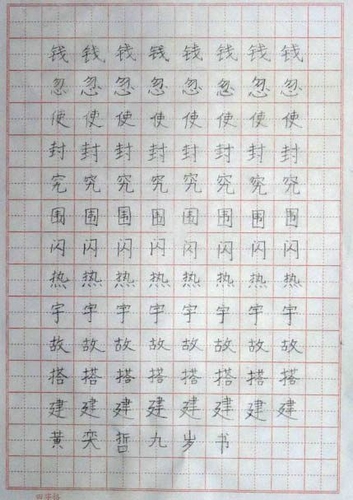 钱钱钱钱钱钱钱钱
忽忽忽忽忽忽忽忽
便使便使使使使使
封封封封封封封封
究究究究究究究究
围围围围围围围围
闪闪闪闪闪闪闪闪
热热热热热热热热
宇宇宇宇宇宇宇宇
故故故故故故故故
搭搭搭搭搭搭搭搭
建建建建建建建建
黄奕哲九岁书